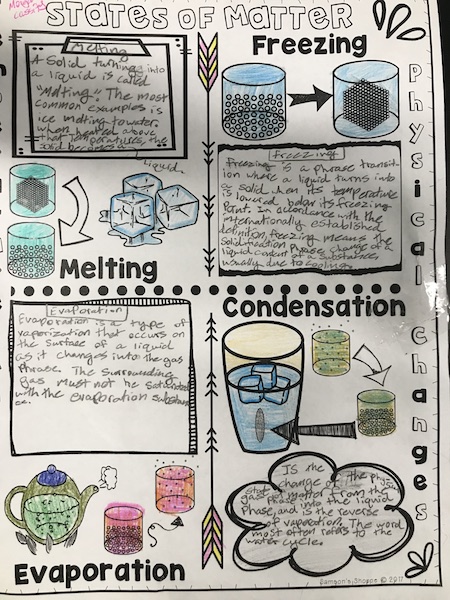 STATES OF MATTER
Melting
A Solid turning into
a liquid is called
"Melting". The most
common examples is
ice melting to water.
when heated above
that temperatures, the
solid becomes a
liquid.
Melting
Freezing
Freezing
Freezing is a phrase transit-
ion where a liquid turns into
a solid when its temperature
is lowered below its freezing
Point. In accordance with the
internationally established
definition, freezing means the
Solidification Phrase change of a
liquid content of a substance,
usually due to cooling.
Physical Changes
Evaporation
Evaporation is a type of
vaporization that occurs on
the Surface of a liquid
as it changes into the gas
Phrase. The Surrounding
gas must not be Saturated
with the evaporation substan
ce.
Evaporation
Condensation
IS the
change of the physi
state of matter from the
gas Phrase into the liquid
Phase, and is the reverse
of vaporation. The word
most often refers to the
water cycle.
Samson's Shoppe © 2017